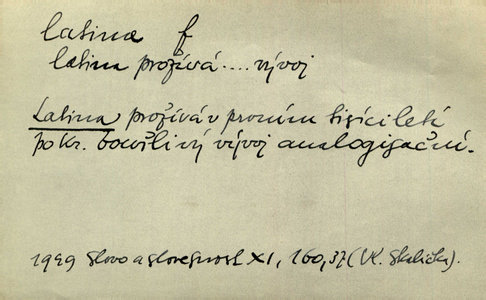 latina f
latina prožívá .... vývoj
Latina prožívá v prvním tisíciletí
po Kr. bouřlivý vývoj analogisační.
1949 Slovo a slovesnost XI, 160, 37 (Vl. Skalička).